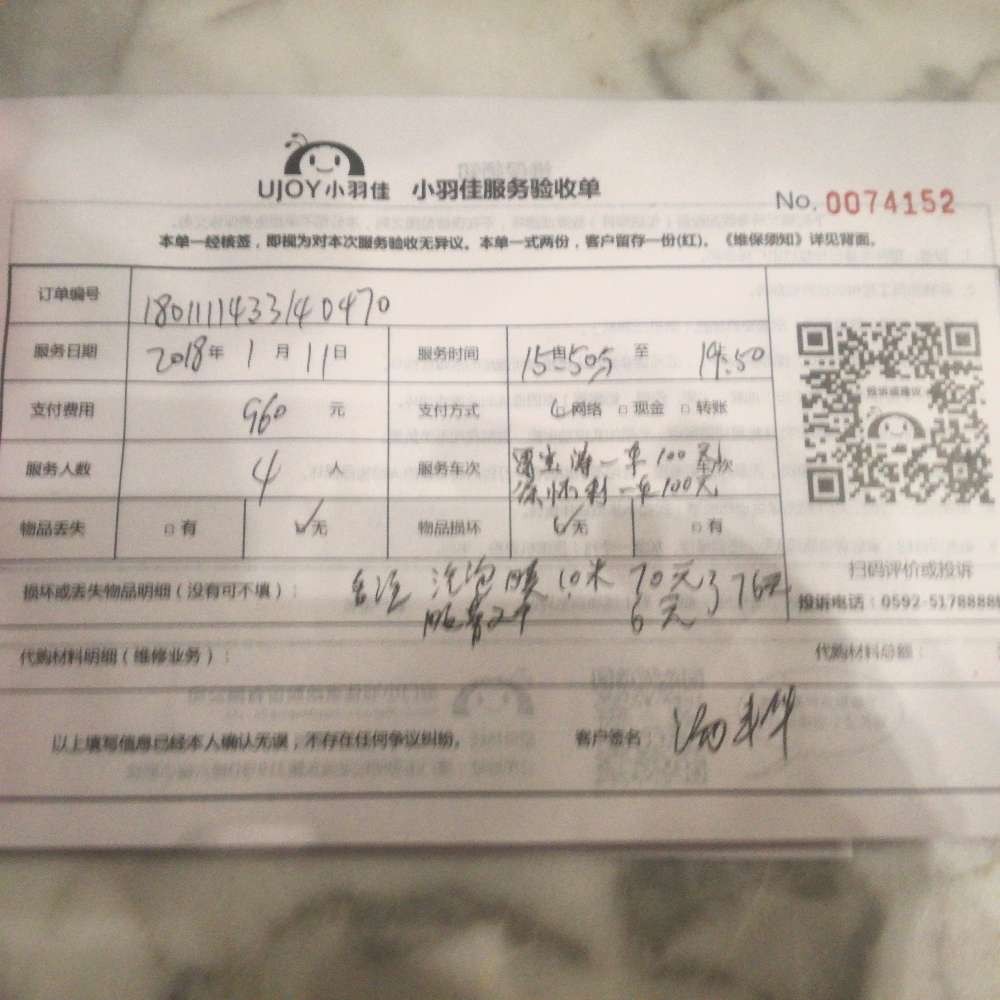 UJOY小羽佳 小羽佳服务验收单
No. 0074152
本单一经核签，即视为对本次服务验收无异议。本单一式两份，客户留存一份(红)。《维保须知》详见背面。
订单编号 1801111433140470
服务日期 2018年 1月 11日 服务时间 至 19:50
支付费用 960 元 支付方式 网络 现金 转账
服务人数 4 人 服务车次 一车100元
一车100元
物品丢失 有 无 物品损坏 无 有
投诉或建议
扫码评价或投诉
损坏或丢失物品明细（没有可不填）： 10米 70元 76元
6元
投诉电话：0592-5178888
代购材料明细（维修业务）： 代购材料总额：
以上填写信息已经本人确认无误，不存在任何争议纠纷。 客户签名：